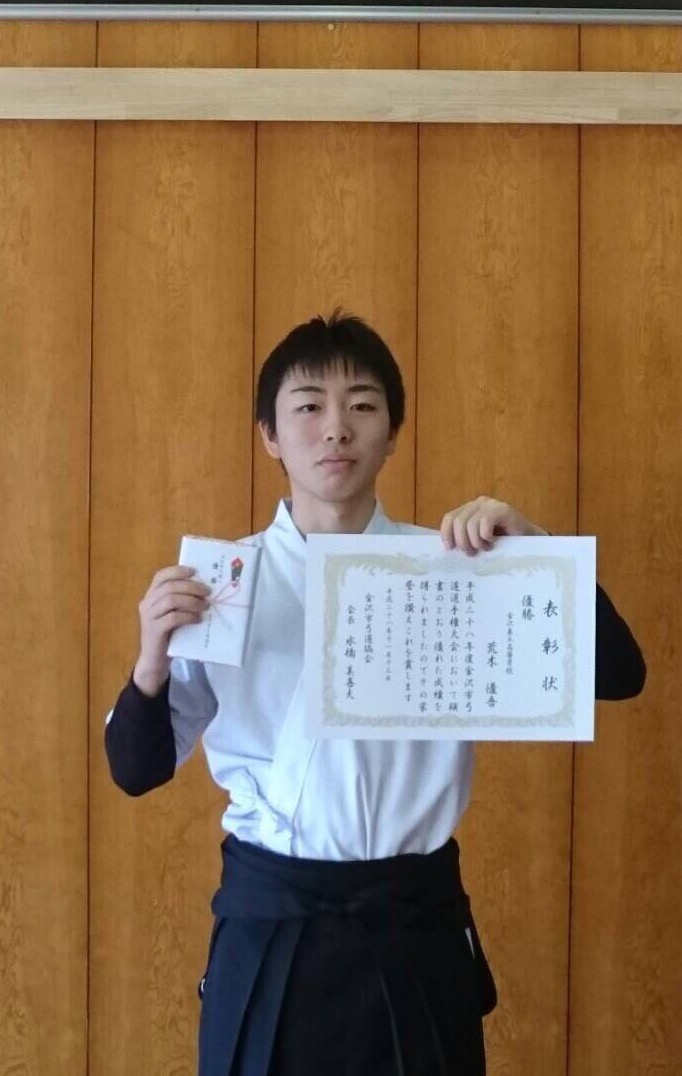 表彰状
優勝
荒木 優吾
平成二十八年度金沢市弓
道選手権大会において頭
書のとおり優れた成績を
得られましたのでその栄
誉を讃えこれを賞します
平成二十八年十一月十三日
金沢市弓道協会
会長 水橋 美喜夫
優勝